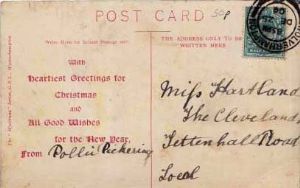 POST CARD
THE ADDRESS ONLY TO BE
WRITTEN HERE
With
Heartiest Greetings for
Christmas
and
All Good Wishes
for the New Year,
From Pollie Pickering
Miss Hartland
The Cleveland,
Tettenhall Road
Local